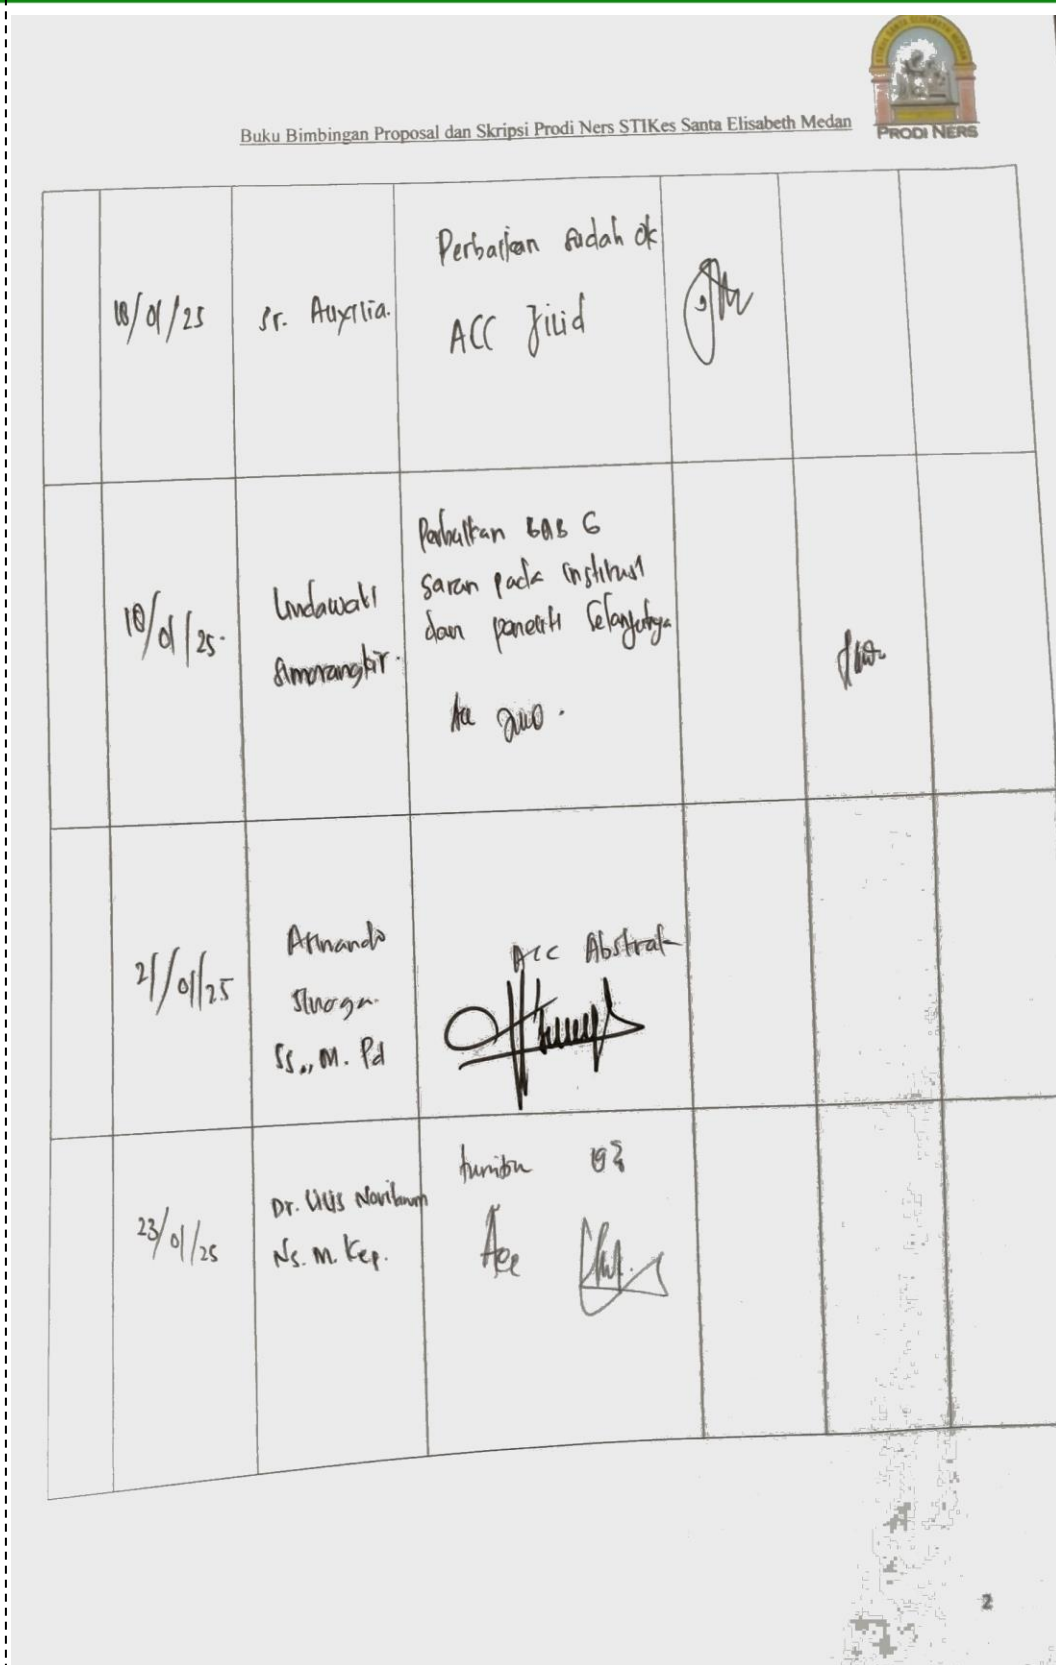 STIKES SANTA ELISABETH MEDAN
PRODI NERS
Buku Bimbingan Proposal dan Skripsi Prodi Ners STIKes Santa Elisabeth Medan
18/01/25
Sr. Auxilia.
Perbaikan sudah ok
ACC Jilid
18/01/25.
Lindawati
Simorangkir.
Perbaikan BAB 6
Saran pada institusi
dan peneliti Selanjutnya
Acc
21/01/25
Armando
Sinaga.
SS., M. Pd
Acc Abstrak
23/01/25
Dr. Lilis Novitarum
Ns. M. Kep.
turnitin
Acc
2